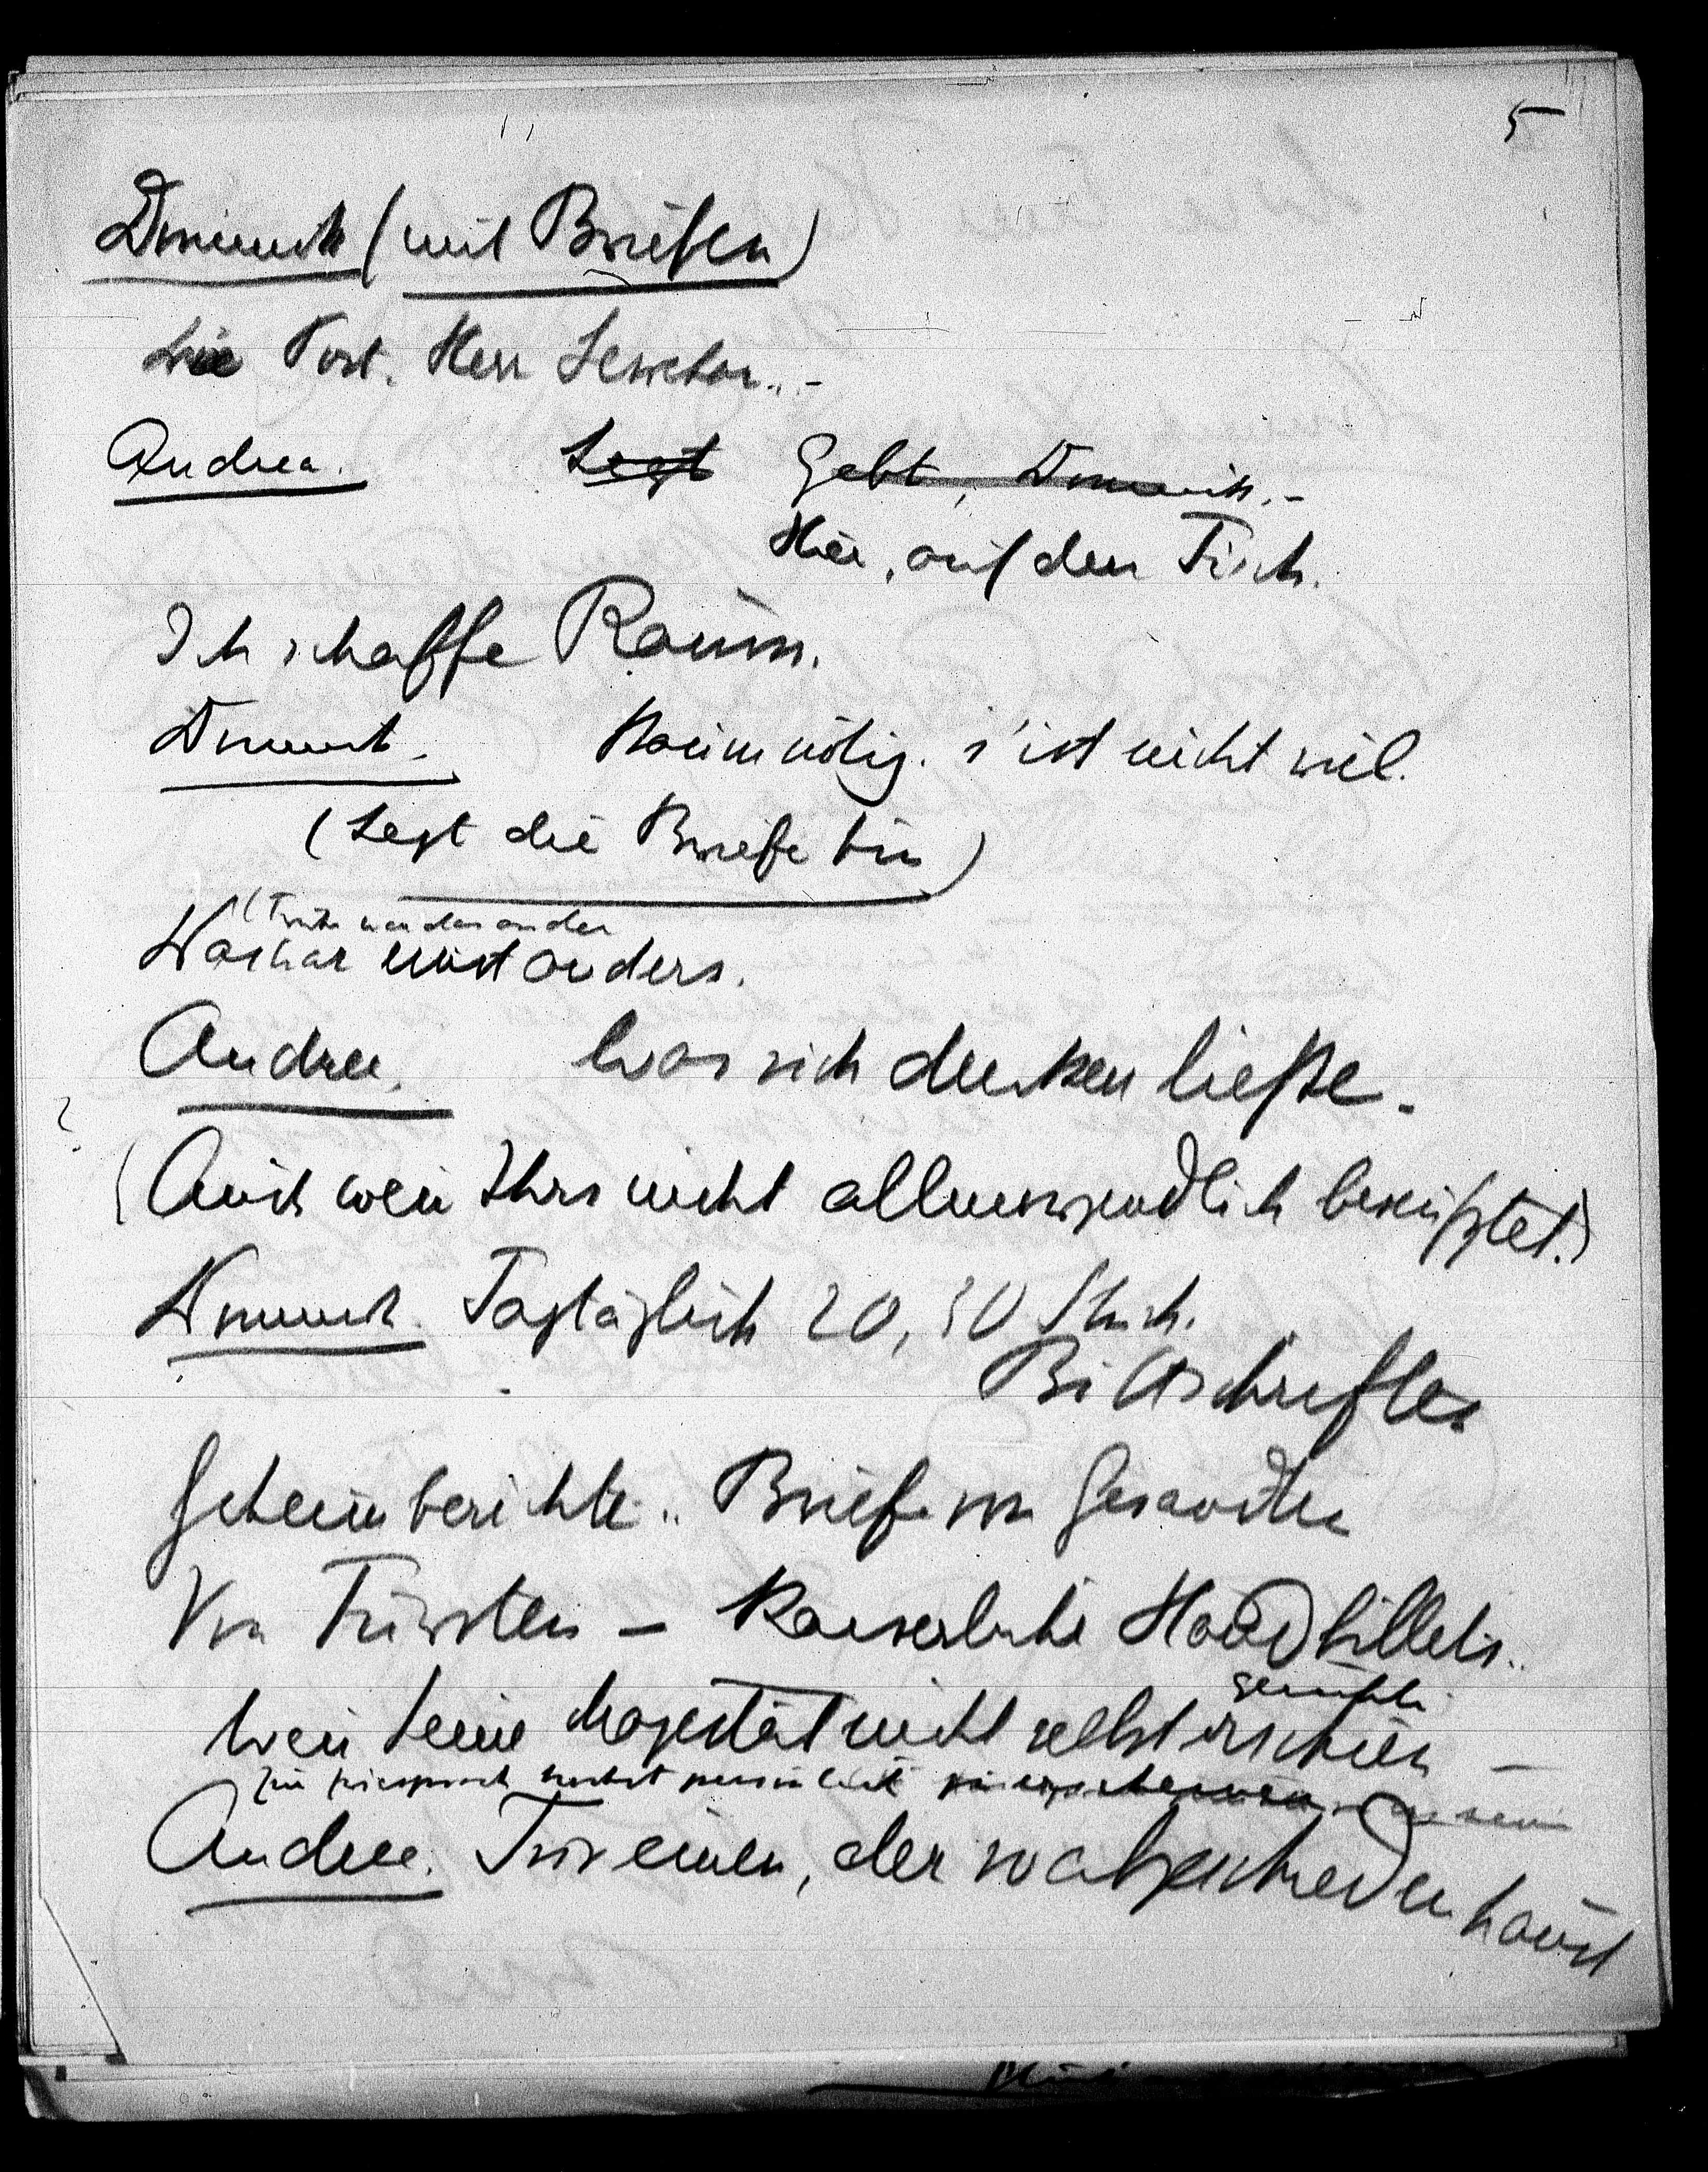 5
Dominik (mit Briefen)
Die Post. Herr Sekretär.. -
Andrea. Legt Gebt, Dominik. -
Hier, auf den Tisch.
Ich schaffe Raum.
Dominik. Kaum nötig. s'ist nicht viel.
(Legt die Briefe hin)
(Früh war das anders
Das war einst anders.
Andrea. Was sich denken ließe -
?
(Auch wenn Ihrs nicht allmorgendlich beseufztet.)
Dominik. Tagtäglich 20, 30 Stück.
Bittschriften
Geheimberichte.. Briefe von Gesandten
Von Fürsten - Kaiserliche Handbillets..
geruhte
Wenn Seine Majestät nicht selbst erschien -
höchst persönlich zu erscheinen
Andrea. Für einen, der so abgeschieden haust